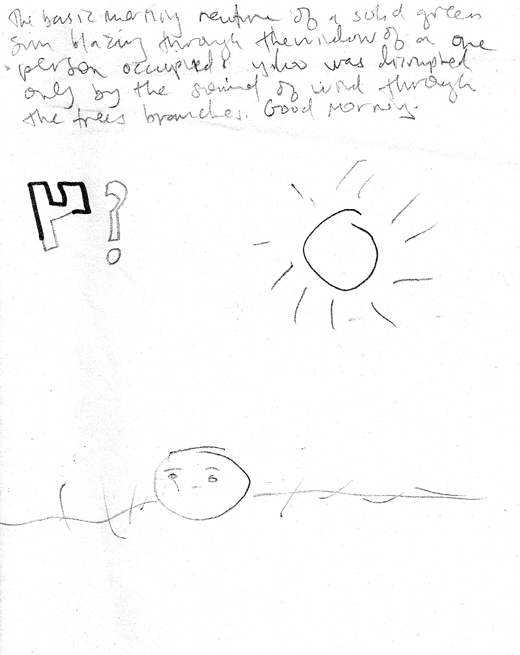 The basic morning routine of a solid green
sun blazing through the window of a one
person occupied yho was disrupted
only by the sound of wind through
the trees branches. Good Morning.
?